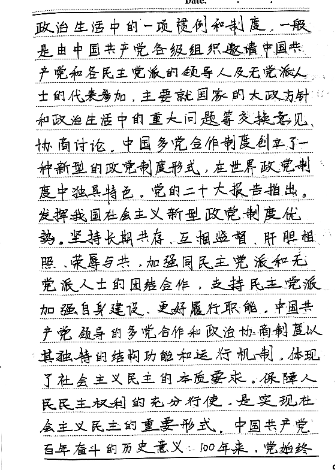 Date.
政治生活中的一项惯例和制度，一般
是由中国共产党各级组织邀请中国共
产党和各民主党派的领导人及无党派人
士的代表参加，主要就国家的大政方针
和政治生活中的重大问题等交换意见、
协商讨论。中国多党合作制度创立了一
种新型的政党制度形式，在世界政党制
度中独具特色。党的二十大报告指出。
发挥我国社会主义新型政党制度优
势。坚持长期共存、互相监督、肝胆相
照、荣辱与共，加强同民主党派和无
党派人士的团结合作，支持民主党派
加强自身建设、更好履行职能。中国共
产党领导的多党合作和政治协商制度以
其独特的结构功能和运行机制，体现
了社会主义民主的本质要求。保障人
民民主权利的充分行使，是实现社
会主义民主的重要形式。中国共产党
百年奋斗的历史意义：100年来，党始终